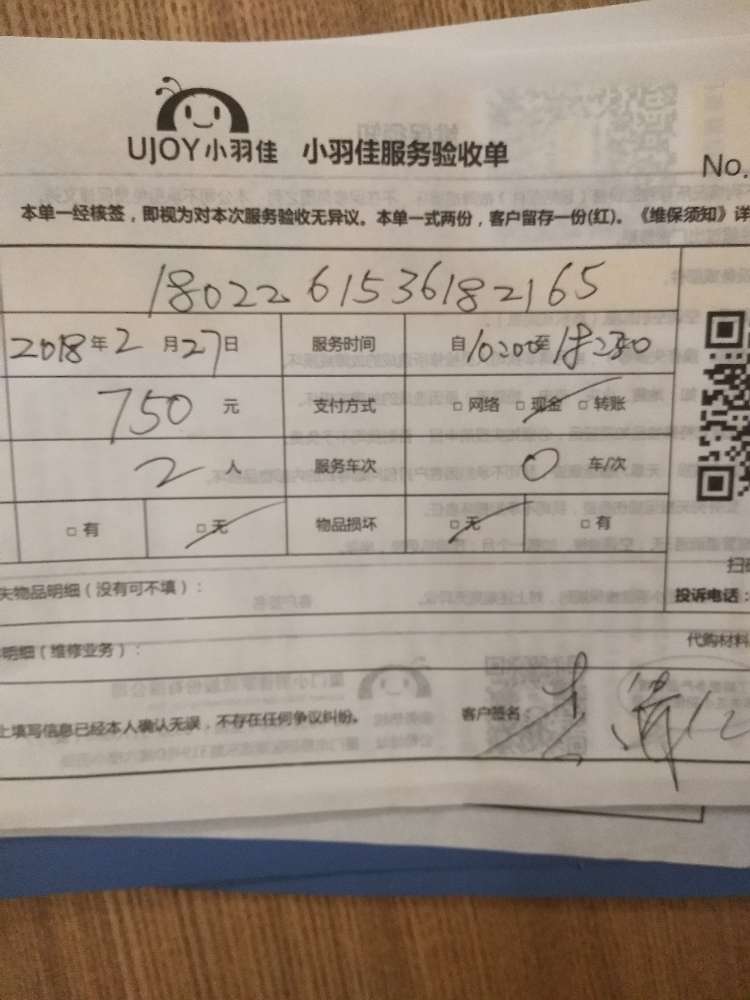 UJOY小羽佳 小羽佳服务验收单
No.
本单一经核签，即视为对本次服务验收无异议。本单一式两份，客户留存一份(红)。《维保须知》详
1802261536182165
2018年2月27日 服务时间 自10200至
750元 支付方式 □网络 □现金 □转账
2人 服务车次 0车/次
□有 □无 物品损坏 □无 □有
失物品明细（没有可不填）：
扫
投诉电话：
明细（维修业务）：
代购材料
上填写信息已经本人确认无误，不存在任何争议纠纷。 客户签名：